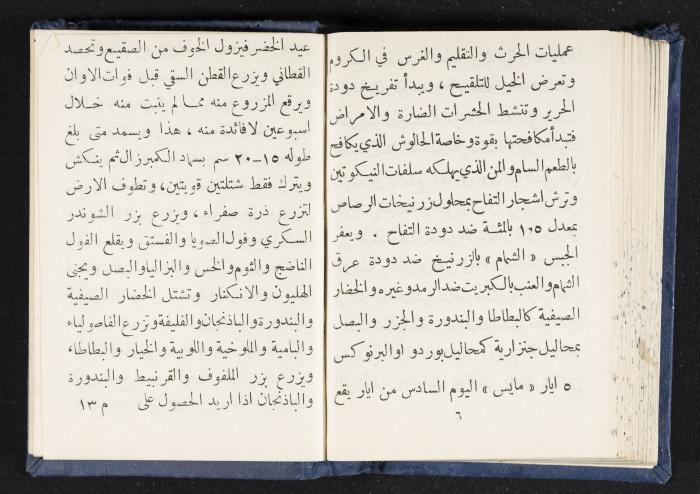 عمليات الحرث والتقليم والغرس في الكروم
وتعرض الخيل للتلقيح ، ويبدأ تفريخ دودة
الحرير وتنشط الحشرات الضارة والامراض
فتبدأ مكافحتها بقوة وخاصة الحالوش الذي يكافح
بالطعم السام والمن الذي يهلكه سلفات النيكوتين
وترش اشجار التفاح بمحلول زرنيخات الرصاص
بمعدل ١٠٥ بالمئة ضد دودة التفاح . ويعفر
الجبس « الشمام » بالزرنيخ ضد دودة عرق
الشمام والعنب بالكبريت ضد الرمد وغيره والخضار
الصيفية كالبطاطا والبندورة والجزر والبصل
بمحاليل جنزارية كمحاليل بوردو او البرنوكس
٥ ايار « مايس » اليوم السادس من ايار يقع
٦
عيد الخضر فيزول الخوف من الصقيع وتحصد
القطاني ويزرع القطن السقي قبل فوات الاوان
ويرقع المزروع منه مما لم ينبت منه خلال
اسبوعين لافائدة منه ، هذا ويسمد متى بلغ
طوله ١٥-٢٠ سم بسماد الكمبرزال ثم ينكش
ويترك فقط شتلتين قويتين، وتطوف الارض
لتزرع ذرة صفراء ، ويزرع بزر الشوندر
السكري وفول الصويا والفستق ويقلع الفول
الناضج والثوم والخس والبزاليا والبصل ويجنى
الهليون والانكنار وتشتل الخضار الصيفية
والبندورة والباذنجان والفليفة وتزرع الفاصولياء
والبامية والملوخية واللوبية والخيار والبطاطا،
ويزرع بزر الملفوف والقرنبيط والبندورة
والباذنجان اذا اريد الحصول على
م ١٣